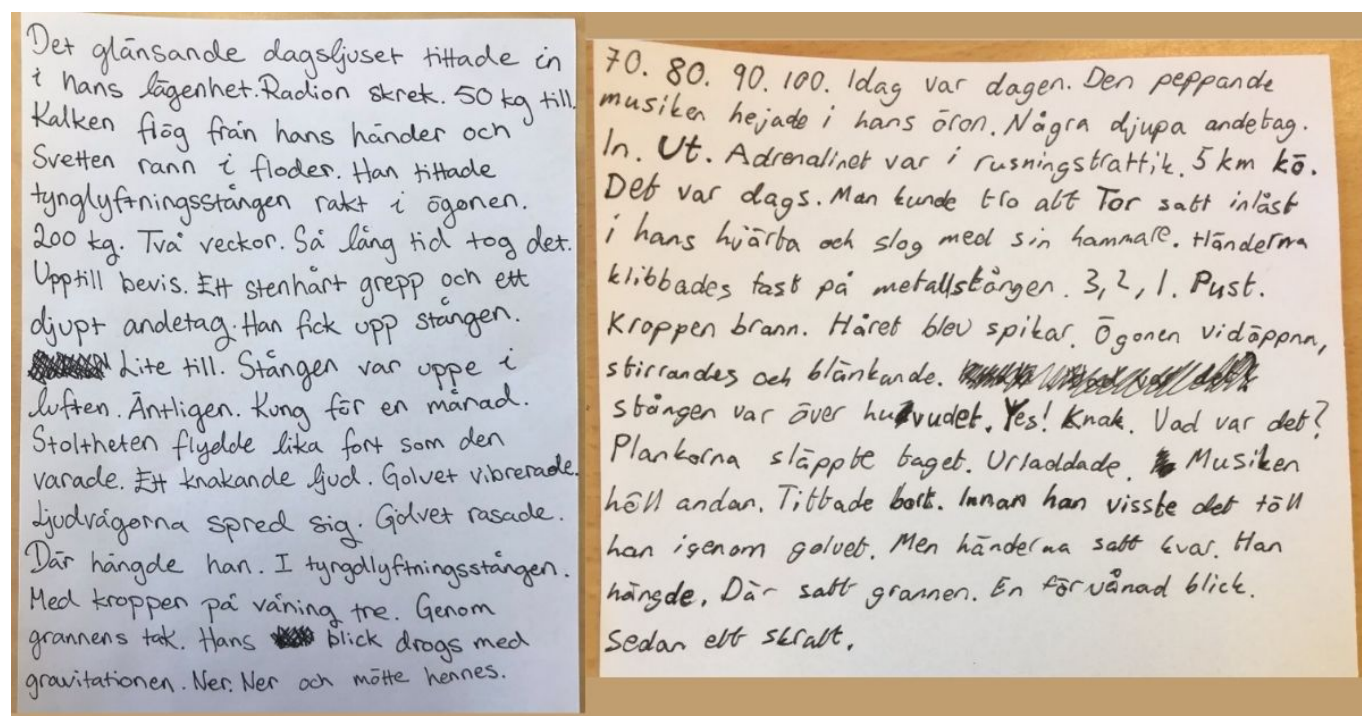 Det glänsande dagsljuset tittade in
i hans lägenhet. Radion skrek. 50 kg till.
Kalken flög från hans händer och
Svetten rann i floder. Han tittade
tynglyftningsstången rakt i ögonen.
200 kg. Två veckor. Så lång tid tog det.
Upptill bevis. Ett stenhårt grepp och ett
djupt andetag. Han fick upp stången.
Lite till. Stången var uppe i
luften. Äntligen. Kung för en månad.
Stoltheten flydde lika fort som den
varade. Ett knakande ljud. Golvet vibrerade.
Ljudvågorna spred sig. Golvet rasade.
Där hängde han. I tyngdlyftningsstången.
Med kroppen på våning tre. Genom
grannens tak. Hans blick drogs med
gravitationen. Ner. Ner och mötte hennes.
70. 80. 90. 100. Idag var dagen. Den peppande
musiken hejade i hans öron. Några djupa andetag.
In. Ut. Adrenalinet var i rusningstrafik. 5 km kö.
Det var dags. Man kunde tro att Tor satt inlåst
i hans hjärta och slog med sin hammare. Händerna
klibbades fast på metallstången. 3, 2, 1. Pust.
Kroppen brann. Håret blev spikar. Ögonen vidöppna,
stirrandes och blänkande.
stången var över huvudet. Yes! Knak. Vad var det?
Plankorna släppte taget. Urladdade. Musiken
höll andan. Tittade bort. Innan han visste det föll
han igenom golvet. Men händerna satt kvar. Han
hängde. Där satt grannen. En förvånad blick.
Sedan ett skratt.